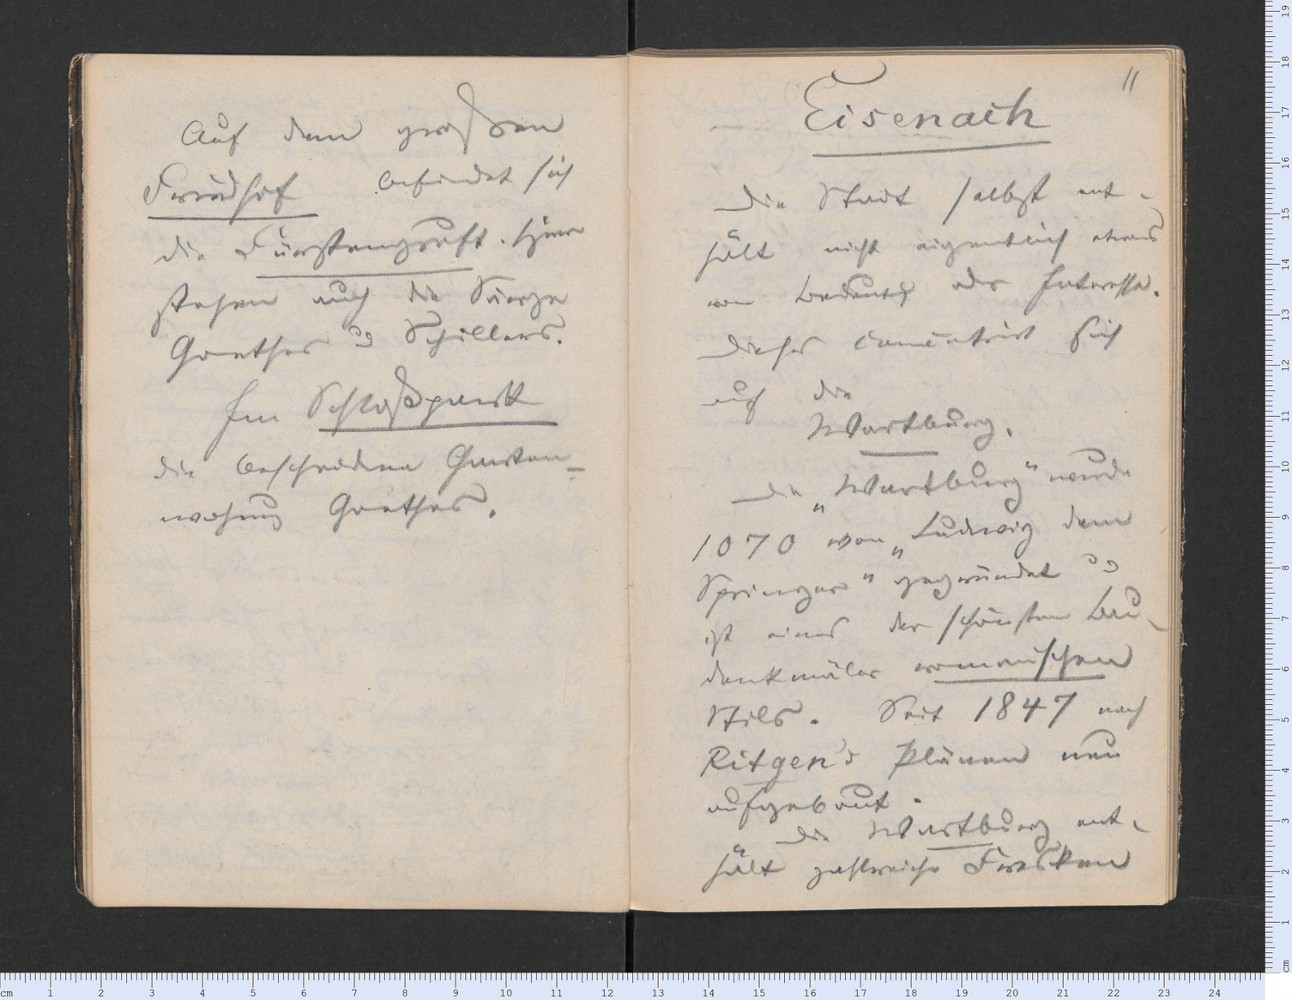 Auf dem großen
Friedhof befindet sich
die Fürstengruft. Hier
stehen auch die Särge
Goethes u Schillers.
Im Schloßpark
die bescheidene Garten-
wohnung Goethes.
11
Eisenach
Die Stadt selbst ent-
hält nicht eigentlich etwas
von Bedeutg oder Interesse.
Dieses concentrirt sich
auf die
Wartburg.
Die „Wartburg" wurde
1070 von „Ludwig dem
Springer" gegründet u
ist eines der schönsten Bau-
denkmäler romanischen
Stils. Seit 1847 nach
Ritgen's Plänen neu
aufgebaut.
Die Wartburg ent-
hält zahlreiche Fresken